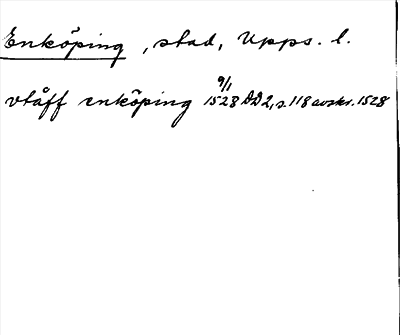 Enköping, stad, Upps. l.
vtåff enköping 9/1 1528 DD2, s. 118 avskr. 1528